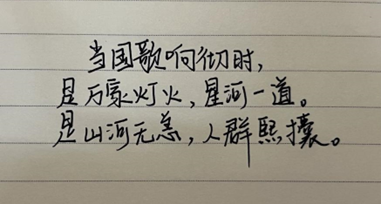 当国歌响彻时，
是万家灯火，星河一道。
是山河无恙，人群熙攘。